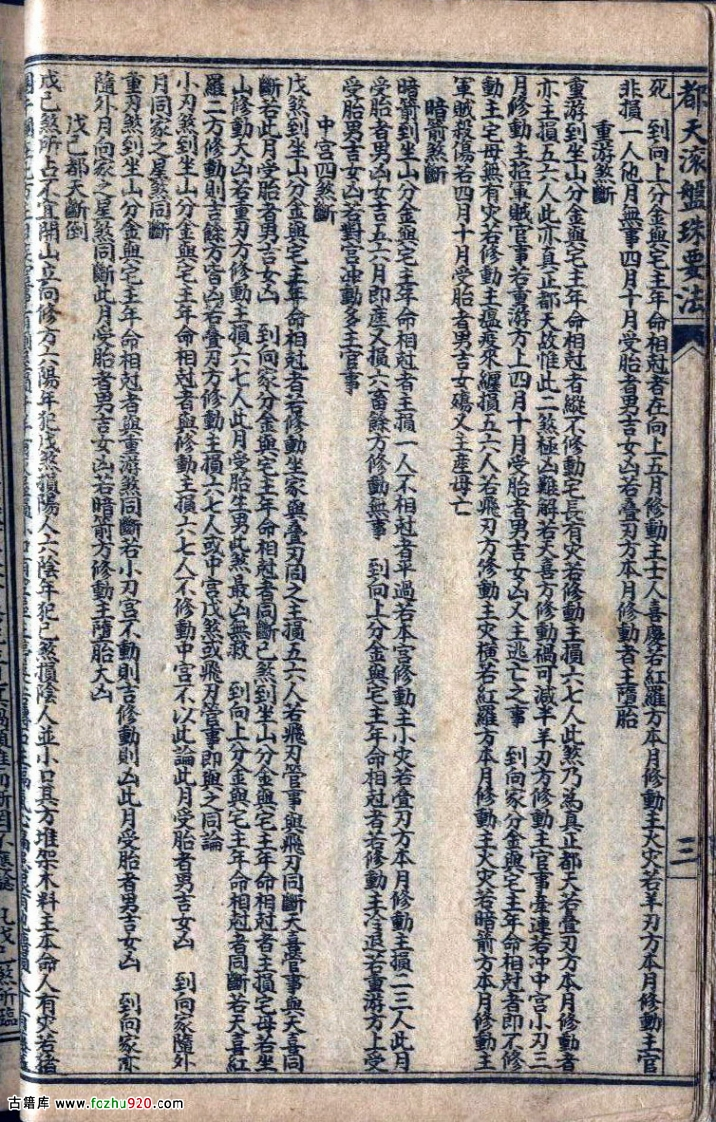 都天滾盤珠要法
三
死　到向上分金與宅主年命相尅者在向上五月修動主士人喜慶若紅羅方本月修動主火灾若羊刃方本月修動主官
非損一人他月無事四月十月受胎者男吉女凶若疊刃方本月修動者主墮胎
重游煞斷
重游到坐山分金與宅主年命相尅者縱不修動宅長有灾若修動主損六七人此煞乃爲真正都天若疊刃方本月修動者
亦主損五六人此亦真正都天故惟此二煞極凶難解若天喜方修動禍可減半羊刃方修動主官事牽連若沖中宮小刃三
月修動主招軍賊官事若重游方上四月十月受胎者男吉女凶又主逃亡之事　到向家分金與宅主年命相尅者即不修
動主宅母無有灾若修動主瘟疫來纏損五六人若飛刃方修動主灾橫若紅羅方本月修動主火灾若暗箭方本月修動主
軍賊殺傷若四月十月受胎者男吉女殤又主產母亡
暗箭煞斷
暗箭到坐山分金與宅主年命相尅者主損一人不相尅者平過若本宮修動主小灾若疊刃方本月修動主損一二三人此月
受胎者男凶女吉五六月即產又損六畜餘方修動無事　到向上分金與宅主年命相尅者若修動主冷退若重游方上受
受胎男吉女凶若對宮沖動多主官事
中宮四煞斷
戊煞到坐山分金與宅主年命相尅者若修動坐家與疊刃同之主損五六人若飛刃管事與飛刃同斷天喜管事與天喜同
斷若此月受胎者男吉女凶　到向家分金與宅主年命相尅者同斷己煞到坐山分金與宅主年命相尅者主損宅母若坐
山修動大凶若重刃方修動主損六七人此月受胎生男此煞最凶無救　到向上分金與宅主年命相尅者同斷若天喜紅
羅二方修動則吉餘方皆凶若疊刃方修動主損六七人或中宮戊煞或飛刃管事即與之同論
小刃煞到坐山分金與宅主年命相尅者與修動主損六七人不修動中宮不以此論此月受胎者男吉女凶　到向家隨外
月同家之星煞同斷
重刃煞到坐山分金與宅主年命相尅者與重游煞同斷若小刃宮不動則吉修動則凶此月受胎者男吉女凶　到向家亦
隨外月向家之星煞同斷此月受胎者男吉女凶若暗箭方修動主墮胎大凶
戊己都天斷倒
戊己煞所占不宜開山立向修方六陽年犯戊煞損陽人六陰年犯己煞損陰人並小口其方堆架木料主本命人有灾若諸
古籍库 www.fozhu920.com